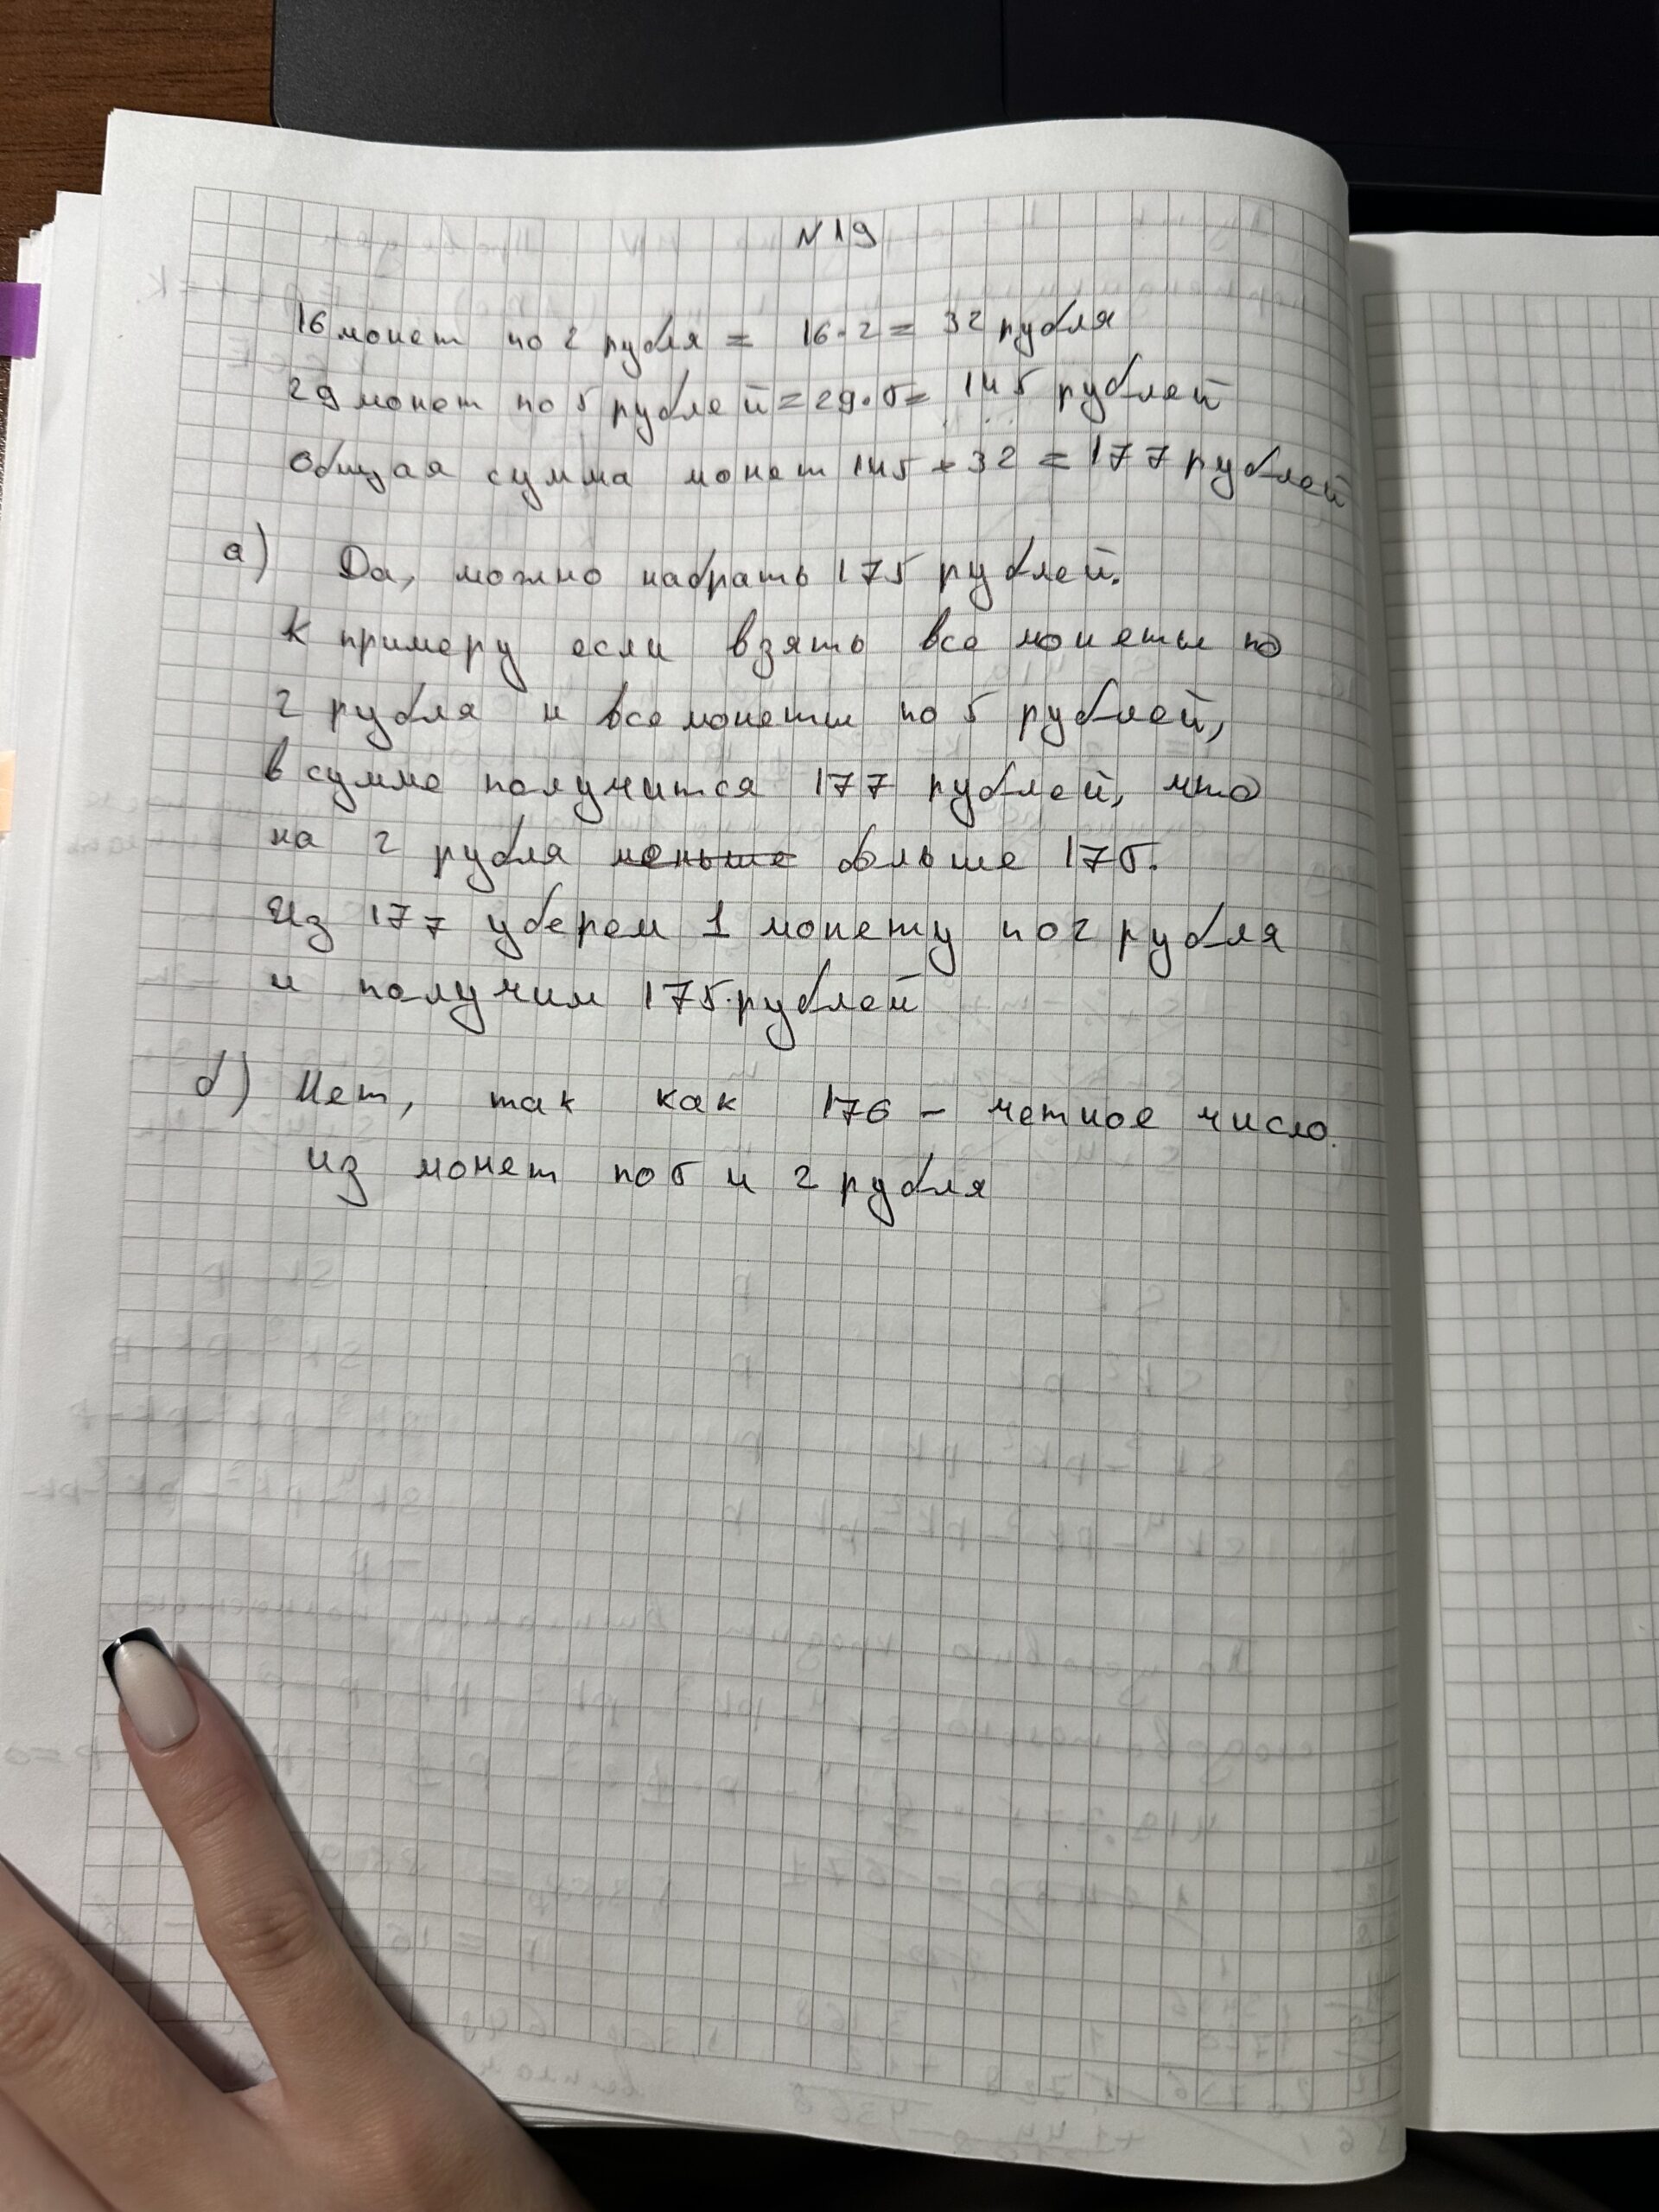 N19
16 монет по 2 рубля = 16·2 = 32 рубля
29 монет по 5 рублей = 29·5 = 145 рублей
Общая сумма монет 145 + 32 = 177 рублей
а) Да, можно набрать 175 рублей.
К примеру если взять все монеты по
2 рубля и все монеты по 5 рублей,
в сумме получится 177 рублей, что
на 2 рубля меньше больше 175.
Из 177 уберем 1 монету по 2 рубля
и получим 175 рублей
б) Нет, так как 176 - четное число.
из монет по 5 и 2 рубля